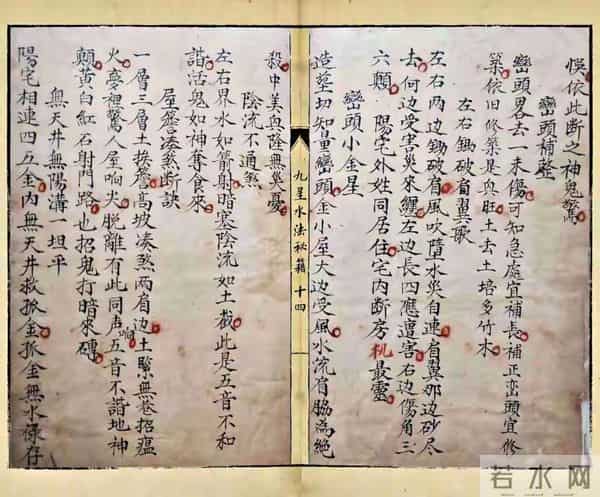 悮依此断之神鬼驚
巒頭補整
巒頭畧去一未傷可知急處宜補長補正峦頭宜修
築依旧修築是與旺土去土培多竹木
左右鋤破肩翼歌
左右兩边鋤破肩風吹墮水災自連肩翼那边砂尽
去何边受害災來纏左边長四應遭害右边傷角三
六顛 陽宅外姓同居住宅內断房机最靈
巒頭小金星
造塋切知量巒頭金小屋大边受風水流肩脇為絶
九星水法秘籍 十四
殺中美與隆無災憂
陰流不通煞
左右界水如箭射暗塞陰流如土截此是五音不和
諧活鬼如神奪食來
屋簷湊煞断訣
一層三層土挨簷高坡凑煞两肩边土緊無巷招瘟
火夢裡驚人屋响尖脱離有此同居五音不諧地神
响
顛黄白紅石射門路也招鬼打暗來磚
無天井無陽溝一坦平
陽宅相連四五金內無天井救孤金孤金無水禄存
若水网